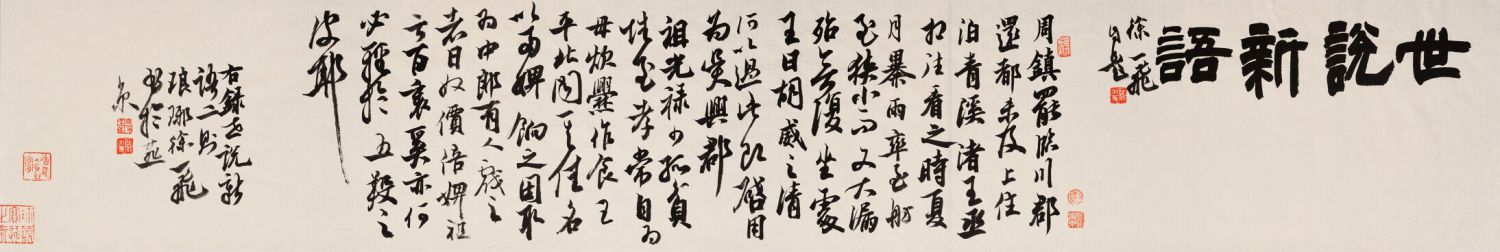 世說新語
徐一飛
周鎮罷臨川郡
還都未及上住
泊青溪渚王丞
相往看之時夏
月暴雨卒至舫
至狹小而又大漏
殆無復坐處
王曰胡威之清
何以過此即啟用
為吳興郡
祖光祿少孤貧
性至孝常自為
母炊爨作食王
平北聞其佳名
以兩婢餉之因取
為中郎有人戲之
者曰奴價倍婢祖
云百里奚亦何
必輕於五羖之
皮耶
右錄世說新
語二則
琅琊徐一飛
書於燕
京